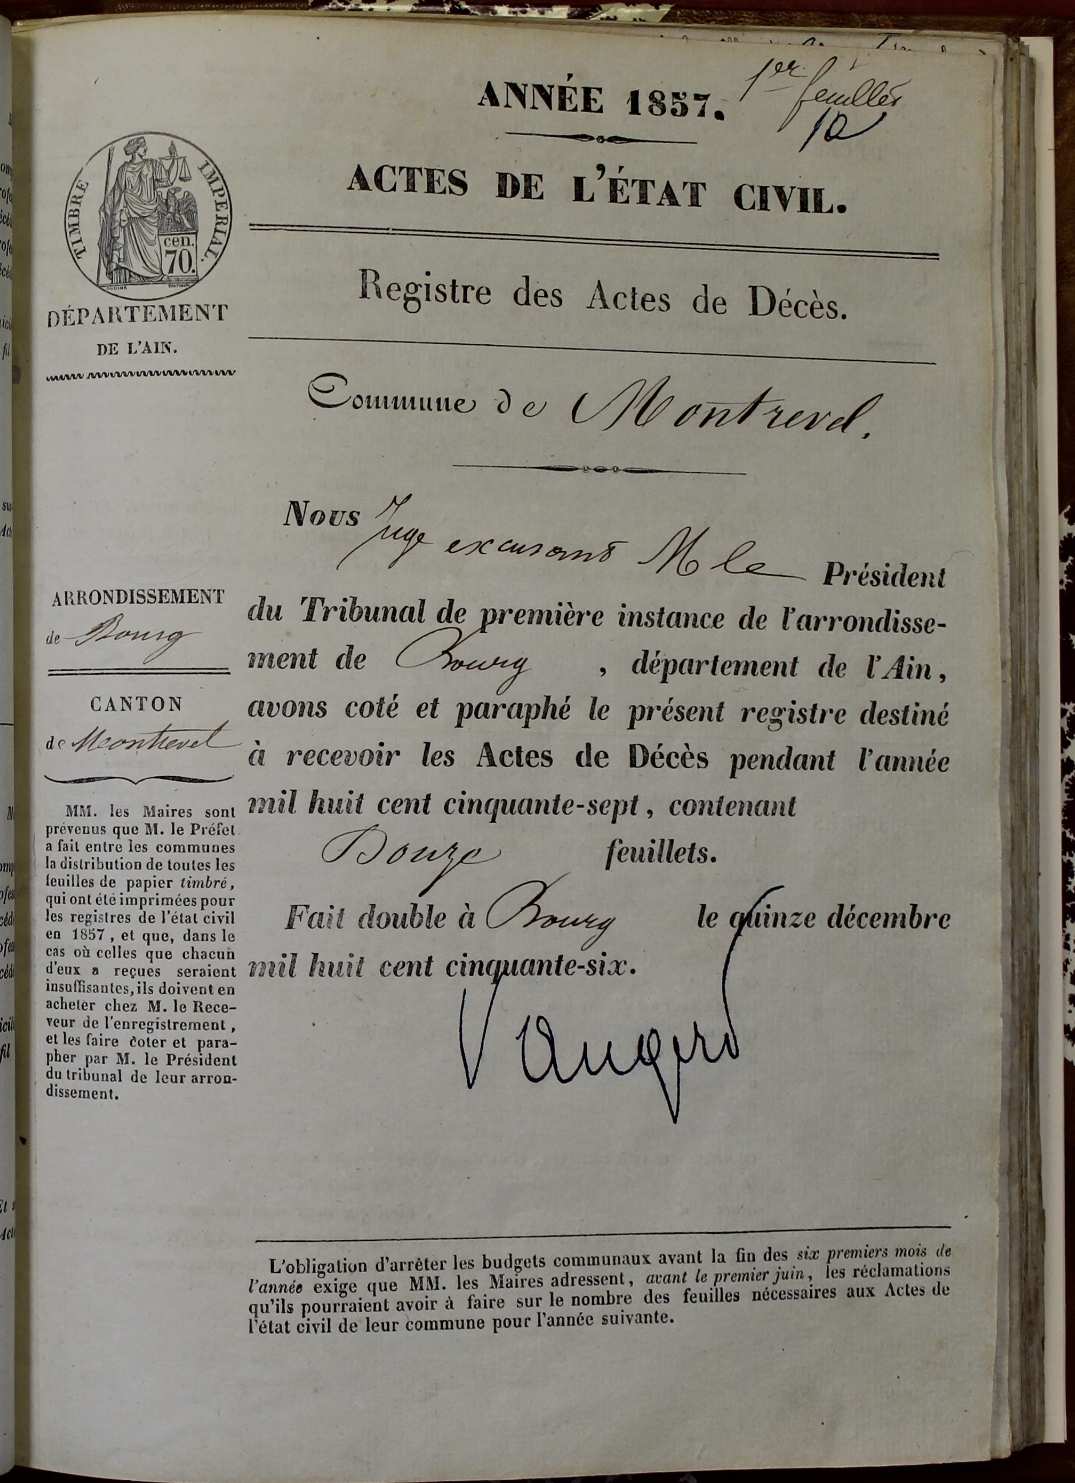 1er feuillet
ANNÉE 1857.
ACTES DE L'ÉTAT CIVIL.
TIMBRE IMPERIAL.
cen.
70.
DÉPARTEMENT
DE L'AIN.
Registre des Actes de Décès.
Commune de Montrevel.
Nous Juge excusant M le Président
du Tribunal de première instance de l'arrondisse-
ment de Bourg , département de l'Ain,
avons coté et paraphé le présent registre destiné
à recevoir les Actes de Décès pendant l'année
mil huit cent cinquante-sept, contenant
Douze feuillets.
Fait double à Bourg le quinze décembre
mil huit cent cinquante-six.
ARRONDISSEMENT
de Bourg
CANTON
de Montrevel
MM. les Maires sont
prévenus que M. le Préfet
a fait entre les communes
la distribution de toutes les
feuilles de papier timbré,
qui ont été imprimées pour
les registres de l'état civil
en 1857, et que, dans le
cas où celles que chacun
d'eux a reçues seraient
insuffisantes, ils doivent en
acheter chez M. le Rece-
veur de l'enregistrement,
et les faire coter et para-
pher par M. le Président
du tribunal de leur arron-
dissement.
L'obligation d'arrêter les budgets communaux avant la fin des six premiers mois de
l'année exige que MM. les Maires adressent, avant le premier juin, les réclamations
qu'ils pourraient avoir à faire sur le nombre des feuilles nécessaires aux Actes de
l'état civil de leur commune pour l'année suivante.